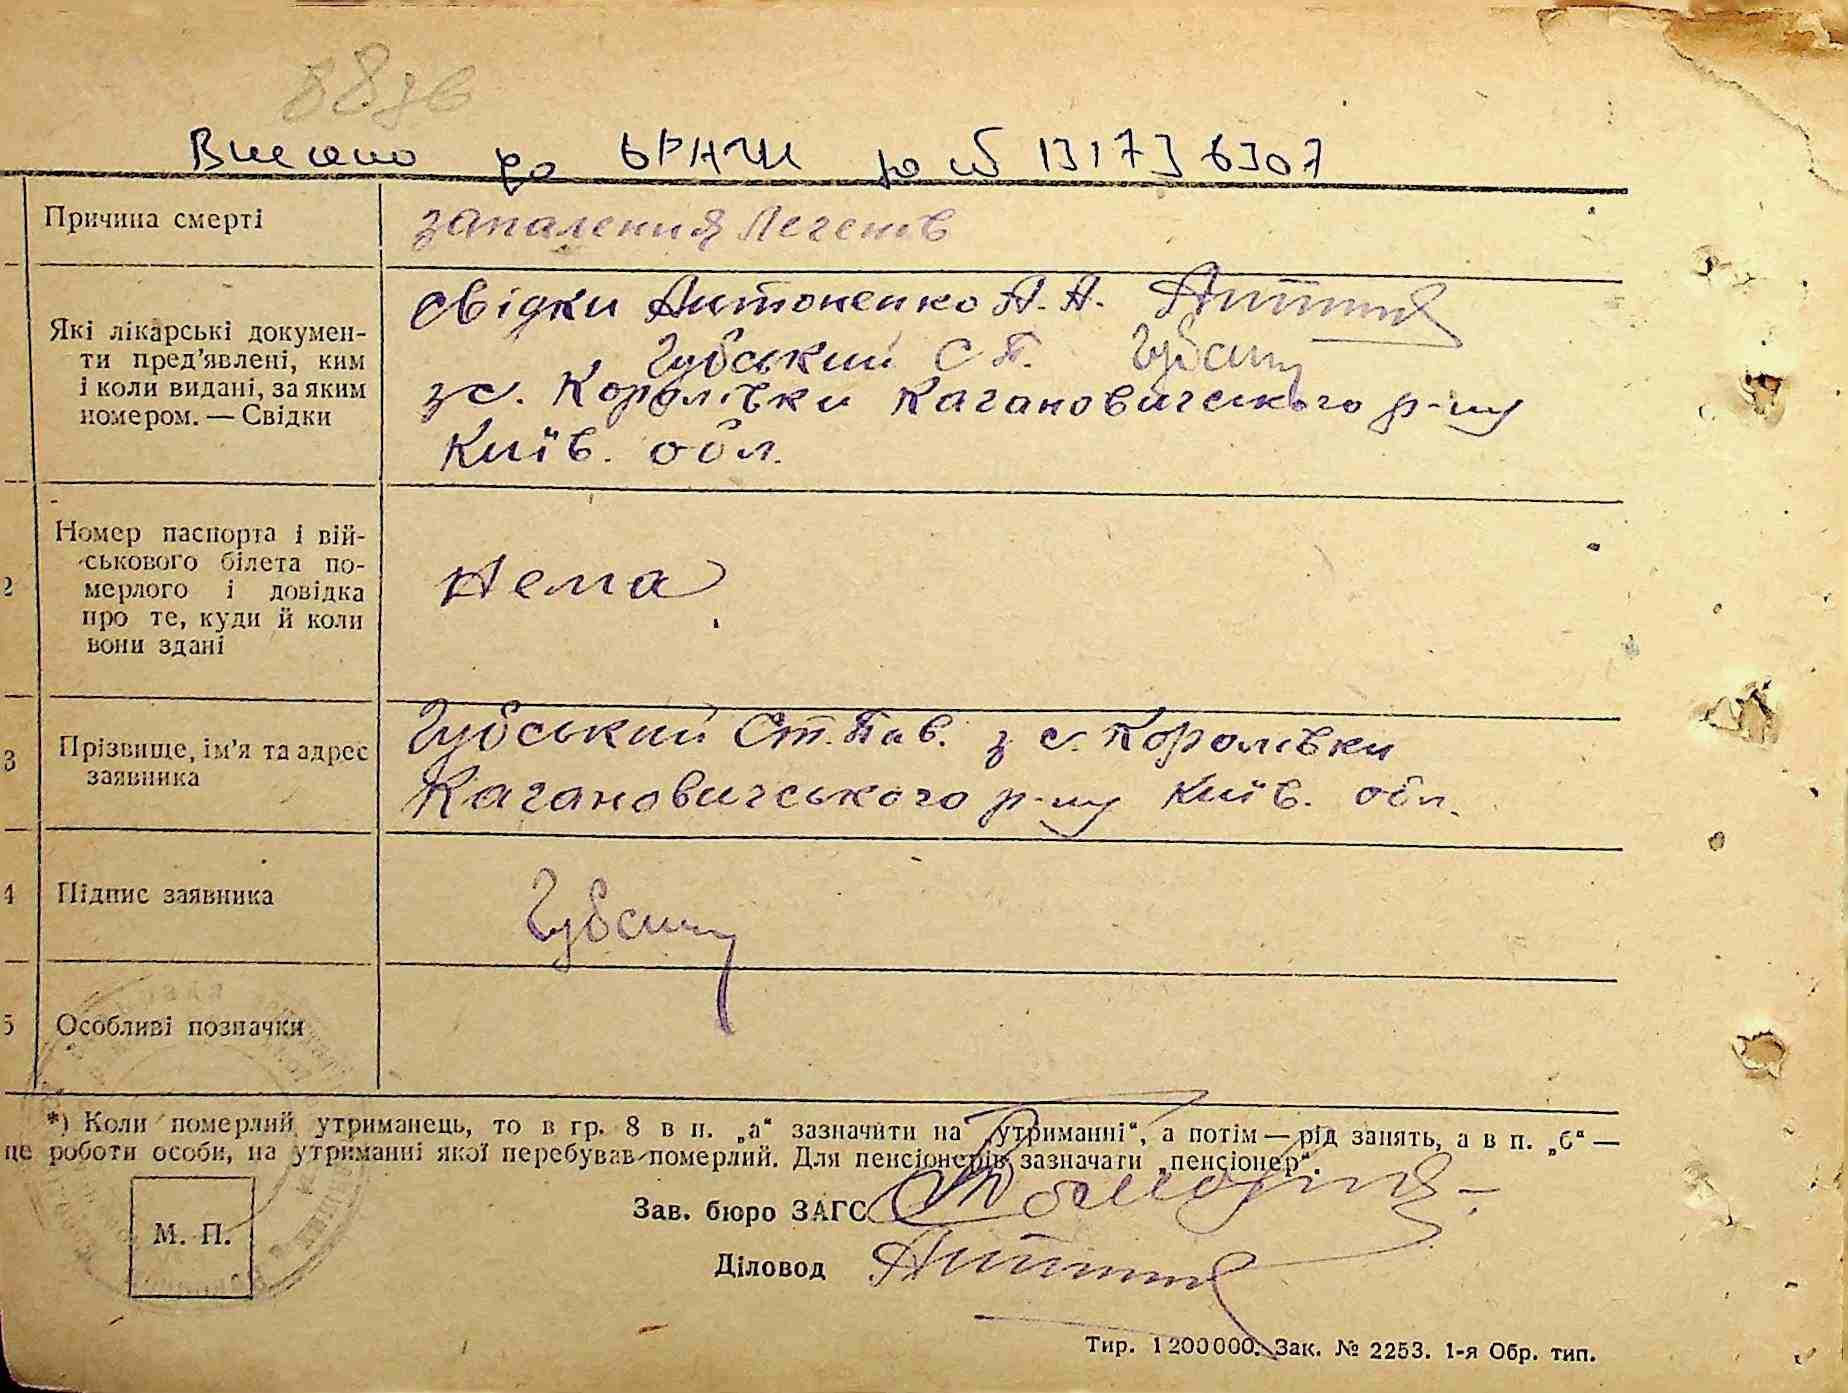 88зв
Внесено до ДРАЦС за № 131736307
Причина смерті
запалення Легенів
Які лікарські докумен-
ти пред'явлені, ким
і коли видані, за яким
номером. — Свідки
свідки Антоненко А. А.
Губський С П.
з с. Королівки Кагановичського р-ну
Київ. обл.
2
Номер паспорта і вій-
ськового білета по-
мерлого і довідка
про те, куди й коли
вони здані
Нема
3
Прізвище, ім'я та адрес
заявника
Губський Ст. Пав. з с. Королівки
Кагановичського р-ну Київ. обл.
4
Підпис заявника
5
Особливі позначки
*) Коли померлий утриманець, то в гр. 8 в п. „а“ зазначити на „утриманні“, а потім — рід занять, а в п. „б“ —
це роботи особи, на утриманні якої перебував померлий. Для пенсіонерів зазначати „пенсіонер“.
Зав. бюро ЗАГС
М. П.
Діловод
Тир. 1200000. Зак. № 2253. 1-я Обр. тип.